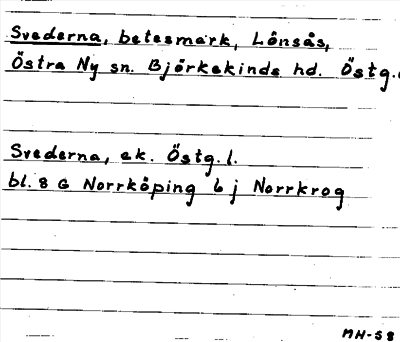 Svederna, betesmark, Lönsås,
Östra Ny sn. Björkekinds hd. Östg.
Svederna, ek. Östg. l.
bl. 8 G Norrköping 6 j Norrkrog
MH-58